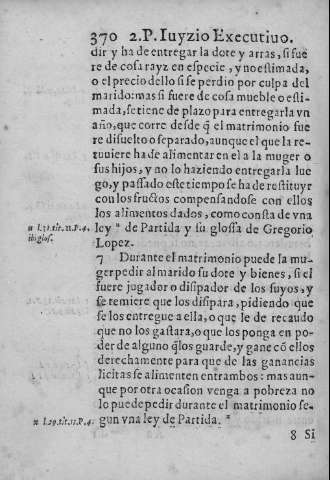 370 2.P. Iuyzio Executiuo.
dir y ha de entregar la dote y arras, si fue
re de cosa rayz en especie, y no estimada,
o el precio dello si se perdio por culpa del
marido: mas si fuere de cosa mueble o esti-
mada, se tiene de plazo para entregarla vn
año, que corre desde q̃ el matrimonio fue
re disuelto o separado, aunque el que la re-
tuuiere ha de alimentar en el a la muger o
sus hijos, y no lo haziendo entregarla lue
go, y passado este tiempo se ha de restituyr
con los fructos compensandose con ellos
los alimentos dados, como consta de vna
ley ⁿ de Partida y su glossa de Gregorio
Lopez.
n l.31.tit.11.P.4.
ibi glos.
7 Durante el matrimonio puede la mu-
ger pedir al marido su dote y bienes, si el
fuere jugador o disipador de los suyos, y
se remiere que los disipara, pidiendo que
se los entregue a ella, o que le de recaudo
que no los gastara, o que los ponga en po-
der de alguno q̃ los guarde, y gane cõ ellos
derechamente para que de las ganancias
licitas se alimenten entrambos: mas aun-
que por otra ocasion venga a pobreza no
lo puede pedir durante el matrimonio se-
gun vna ley de Partida. *
* l.29.tit.11.P.4.
8 Si